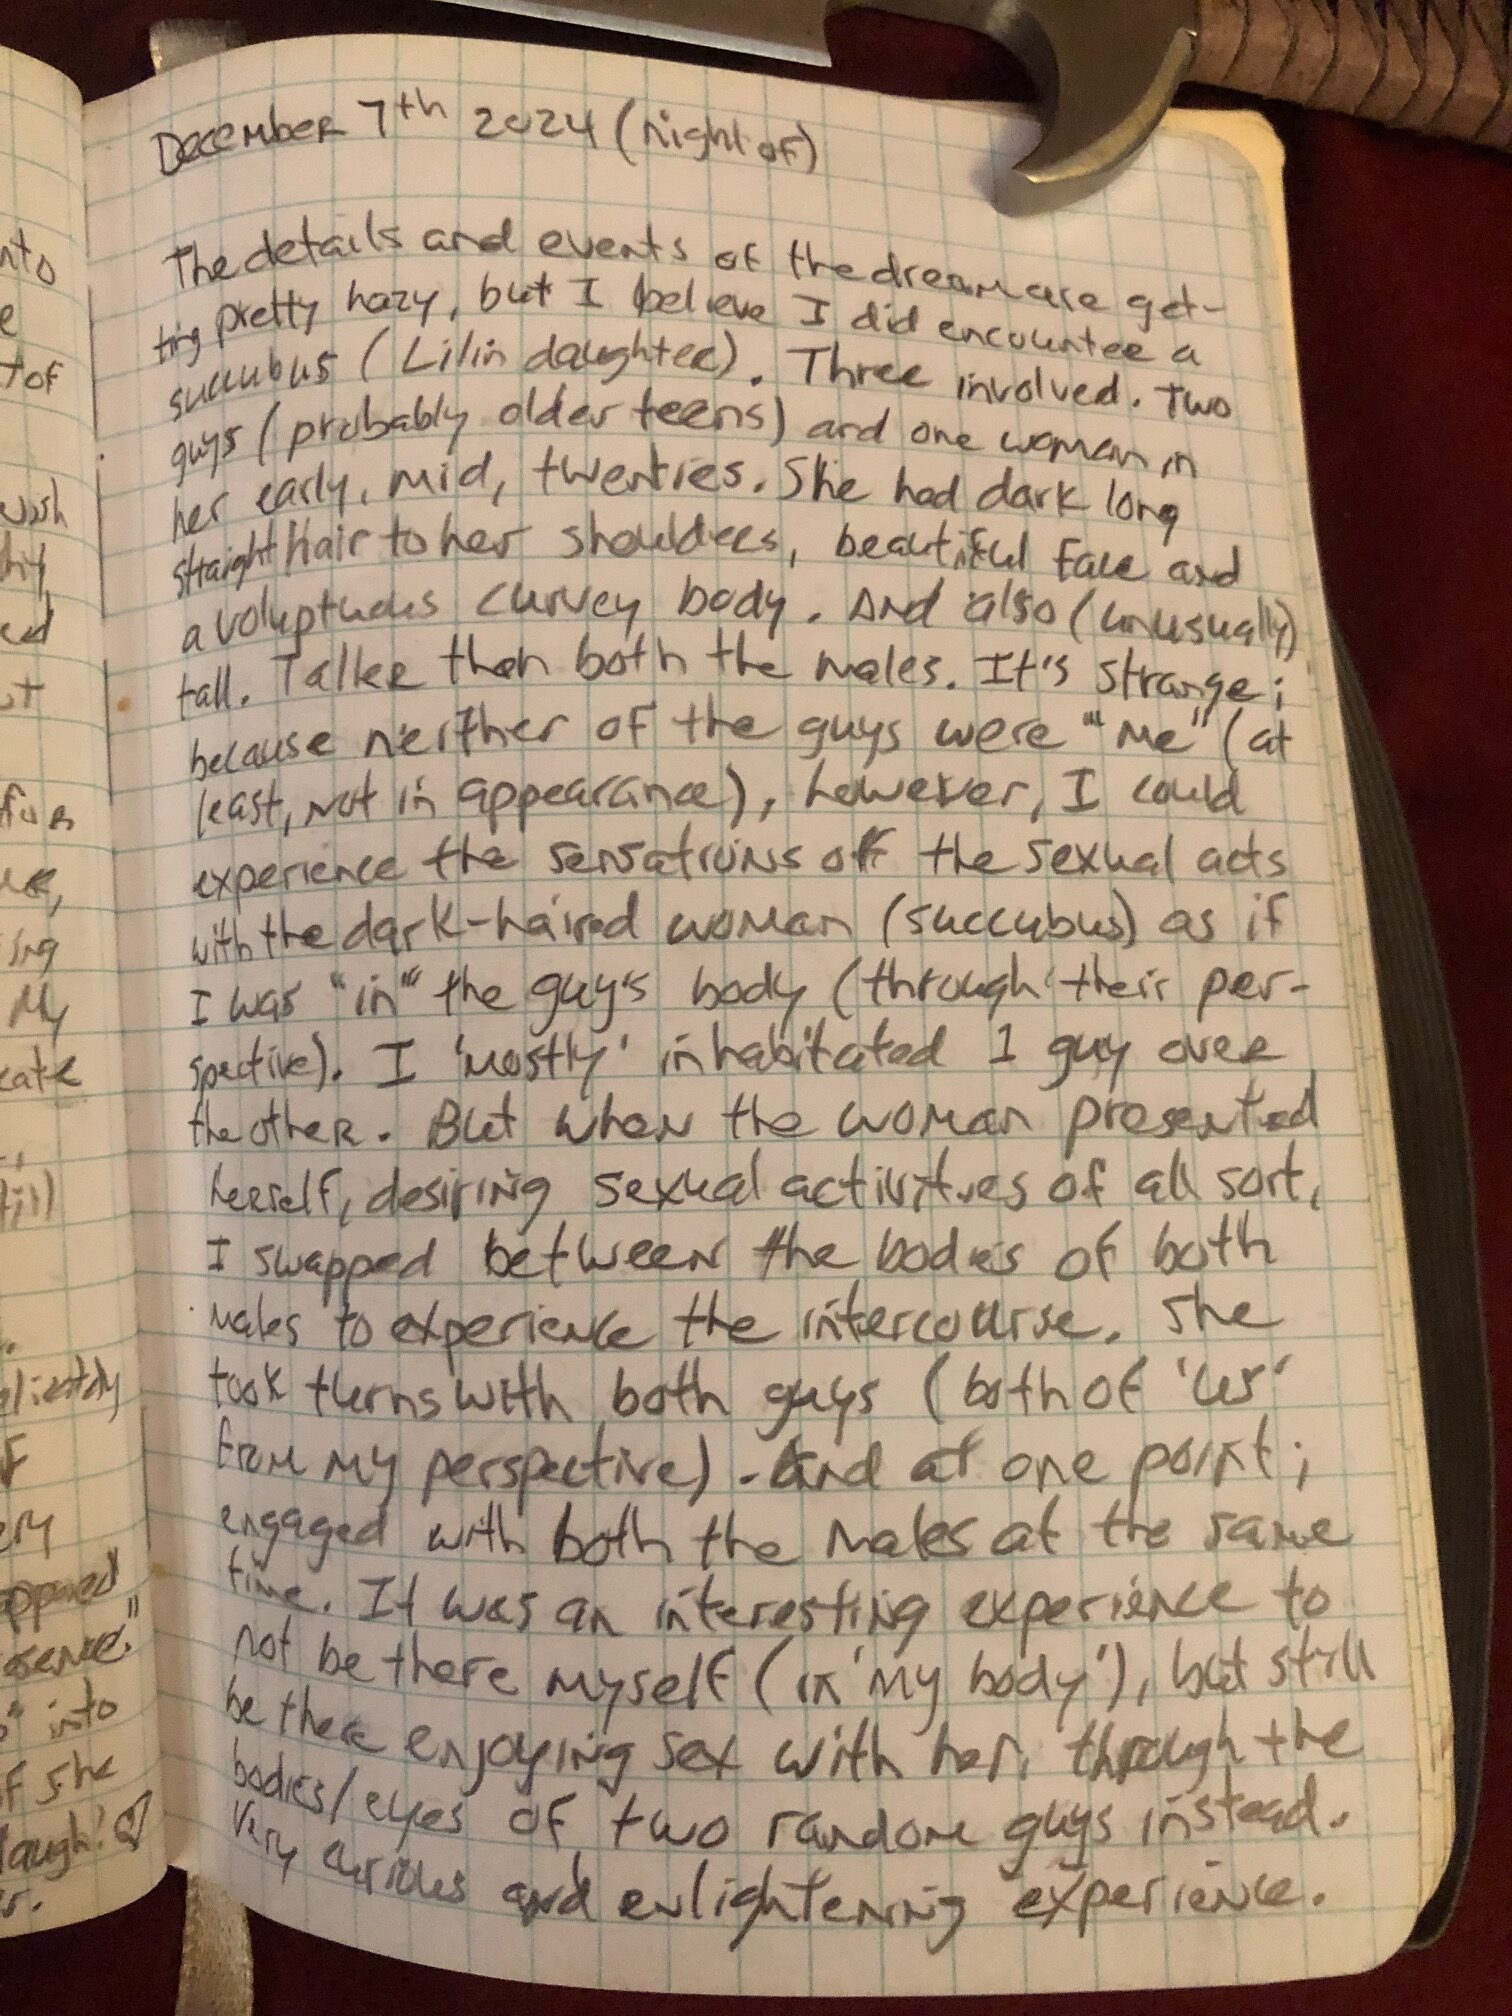 into
e
t of
wish
ed
ing
My
ery
into
of she
laugh!
December 7th 2024 (night of)
The details and events of the dream are get-
ting pretty hazy, but I believe I did encounter a
succubus (Lilin daughter). Three involved. Two
guys (probably older teens) and one woman in
her early, mid, twenties. She had dark long
straight Hair to her shoulders, beautiful face and
a voluptuous curvey body. And also (unusually)
tall. Taller then both the males. It's strange;
because neither of the guys were "me" (at
least, not in appearance), however, I could
experience the sensations of the sexual acts
with the dark-haired woman (succubus) as if
I was "in" the guy's body (through their per-
spective). I 'mostly' inhabitated 1 guy over
the other. But when the woman presented
herself, desiring sexual activities of all sort,
I swapped between the bodies of both
males to experience the intercourse. She
took turns with both guys (both of 'us'
from my perspective). And at one point;
engaged with both the males at the same
time. It was an interesting experience to
not be there myself (in 'my body'), but still
be there enjoying sex with her, through the
bodies/eyes of two random guys instead.
Very curious and enlightening experience.